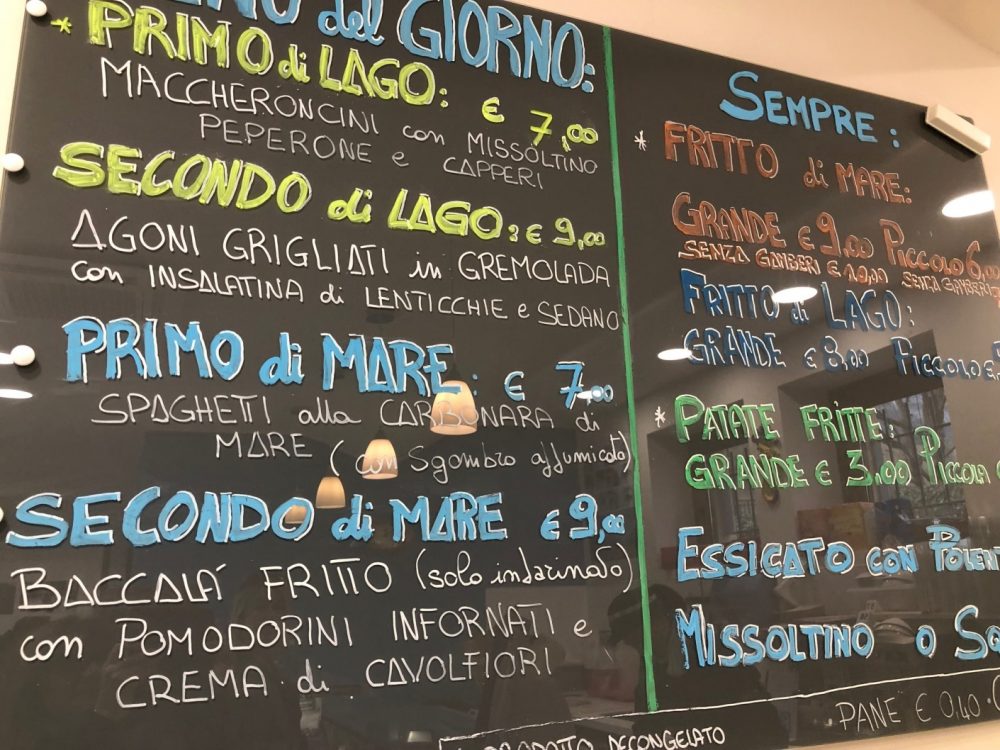 del GIORNO:
* PRIMO di LAGO: € 7,00
MACCHERONCINI con MISSOLTINO
PEPERONE e CAPPERI
SECONDO di LAGO: € 9,00
AGONI GRIGLIATI in GREMOLADA
con INSALATINA di LENTICCHIE e SEDANO
PRIMO di MARE: € 7,00
SPAGHETTI alla CARBONARA di
MARE (con Sgombro affumicato)
SECONDO di MARE € 9,00
BACCALÁ FRITTO (solo infarinato)
con POMODORINI INFORNATI e
CREMA di CAVOLFIORI
SEMPRE:
* FRITTO di MARE:
GRANDE € 9,00 PICCOLO 6,00
SENZA GAMBERI € 10,00 SENZA GAMBERI
FRITTO di LAGO:
GRANDE € 8,00 PICCOLO
* PATATE FRITTE:
GRANDE € 3,00 PICCOLA
ESSICATO CON
MISSOLTINO O
PANE € 0,40
PRODOTTO DECONGELATO